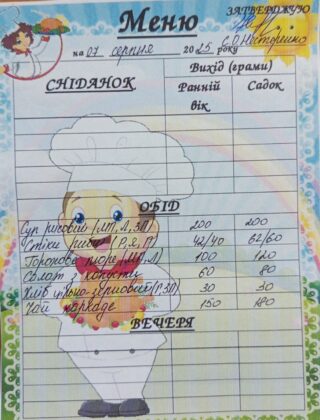 ЗАТВЕРДЖУЮ
Меню
на 07 серпня 2025 року
Вихід (грами)
СНІДАНОК Ранній вік Садок
ОБІД
Суп рисовий (МП, Л, ЗП) 200 200
Стіки рибні (Р, Я, Г) 42/40 62/60
Горохове пюре (МП, Л) 100 120
Салат з капусти 60 80
Хліб цільнозерновий (ГЗП) 30 30
Чай каркаде 150 180
ВЕЧЕРЯ